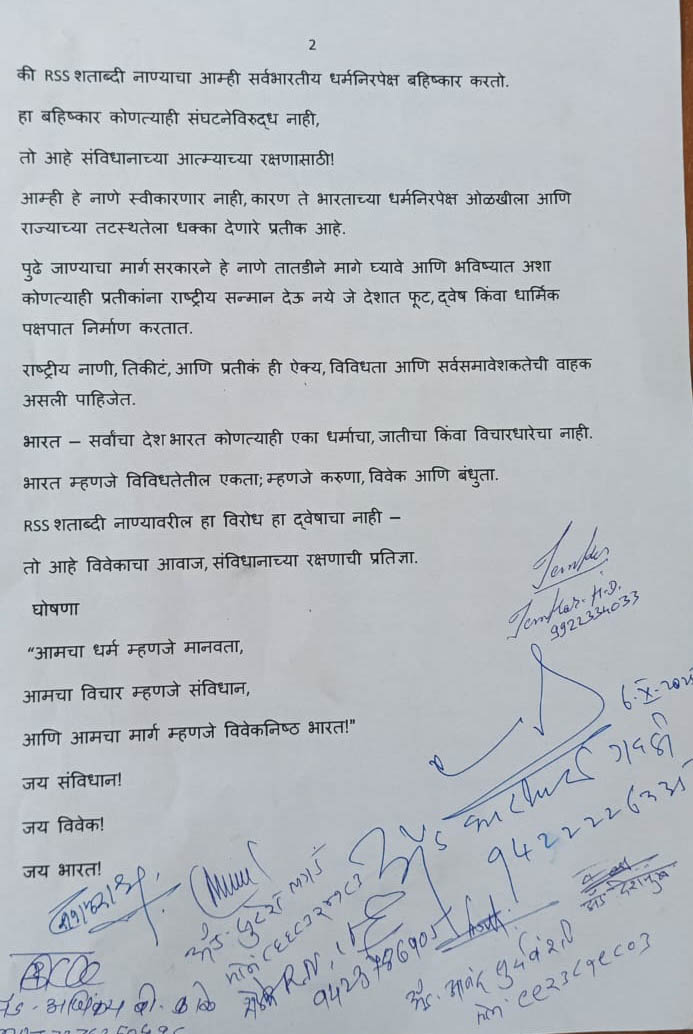 2
की RSS शताब्दी नाण्याचा आम्ही सर्वभारतीय धर्मनिरपेक्ष बहिष्कार करतो.
हा बहिष्कार कोणत्याही संघटनेविरुद्ध नाही,
तो आहे संविधानाच्या आत्म्याच्या रक्षणासाठी!
आम्ही हे नाणे स्वीकारणार नाही, कारण ते भारताच्या धर्मनिरपेक्ष ओळखीला आणि
राज्याच्या तटस्थतेला धक्का देणारे प्रतीक आहे.
पुढे जाण्याचा मार्ग सरकारने हे नाणे तातडीने मागे घ्यावे आणि भविष्यात अशा
कोणत्याही प्रतीकांना राष्ट्रीय सन्मान देऊ नये जे देशात फूट, द्वेष किंवा धार्मिक
पक्षपात निर्माण करतात.
राष्ट्रीय नाणी, तिकीटं, आणि प्रतीकं ही ऐक्य, विविधता आणि सर्वसमावेशकतेची वाहक
असली पाहिजेत.
भारत – सर्वांचा देश भारत कोणत्याही एका धर्माचा, जातीचा किंवा विचारधारेचा नाही.
भारत म्हणजे विविधतेतील एकता; म्हणजे करुणा, विवेक आणि बंधुता.
RSS शताब्दी नाण्यावरील हा विरोध हा द्वेषाचा नाही –
तो आहे विवेकाचा आवाज, संविधानाच्या रक्षणाची प्रतिज्ञा.
घोषणा
“आमचा धर्म म्हणजे मानवता,
आमचा विचार म्हणजे संविधान,
आणि आमचा मार्ग म्हणजे विवेकनिष्ठ भारत!"
जय संविधान!
जय विवेक!
जय भारत!
9922334033
अॅड
गवळी
अॅड. देशमुख
अॅड. आनंद सुर्यवंशी
मोनं. ९९२३८९९८०३